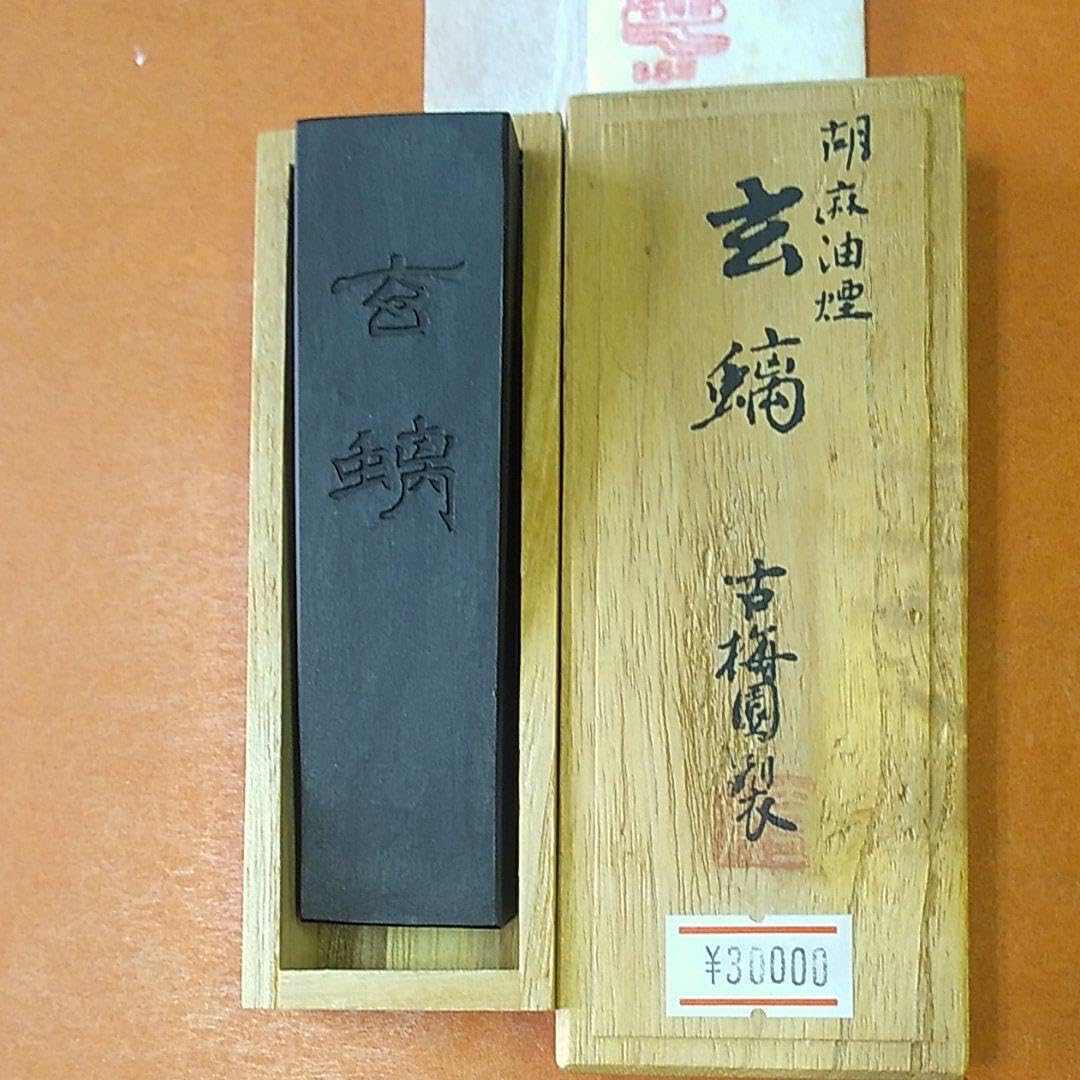 胡麻油煙
玄螭
古梅園製
¥30000
玄螭